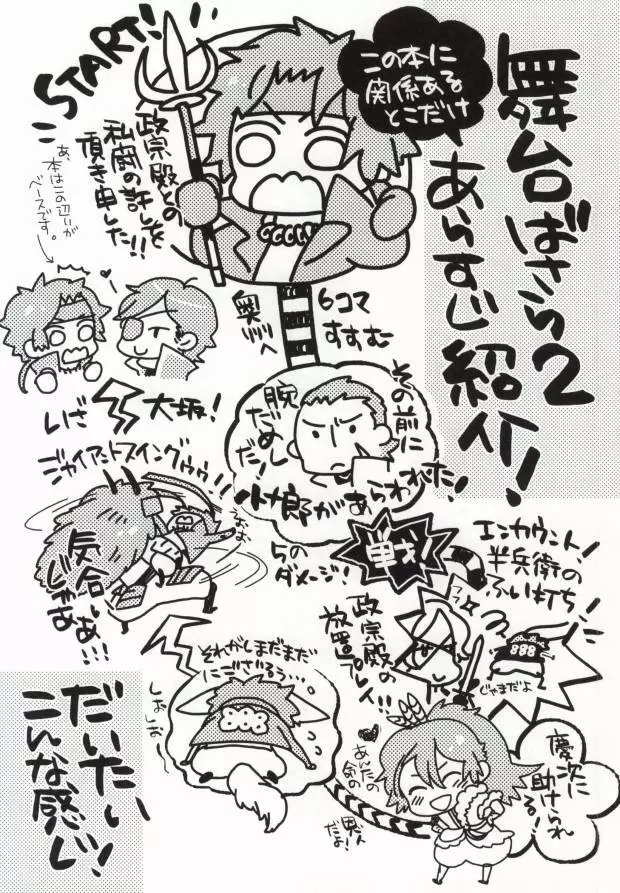 舞台ばさら2
あらすじ紹介!
この本に
関係ある
とこだけ
START!
政宗殿との
私闘の許しを
頂き申した!!
あ、
本はこの辺りが
ベースです。
6コマ
すすむ
奥州へ
その前に
腕
だめし
だ!
小十郎があらわれた!
戦!
5のダメージ!
エンカウント!
半兵衛の
ふい打ち!
政宗殿の
放置プレイ!!
じゃまだよ
慶次に
助けられ
る!
あんたの
気の
恩人
だよ!
それがしまだまだ
にござるぅ…
しおしお
いざ
大坂!
ジャイアントスイングゥゥ!!
気合いじゃあ
あ!!!
だいたい
こんな感じ!